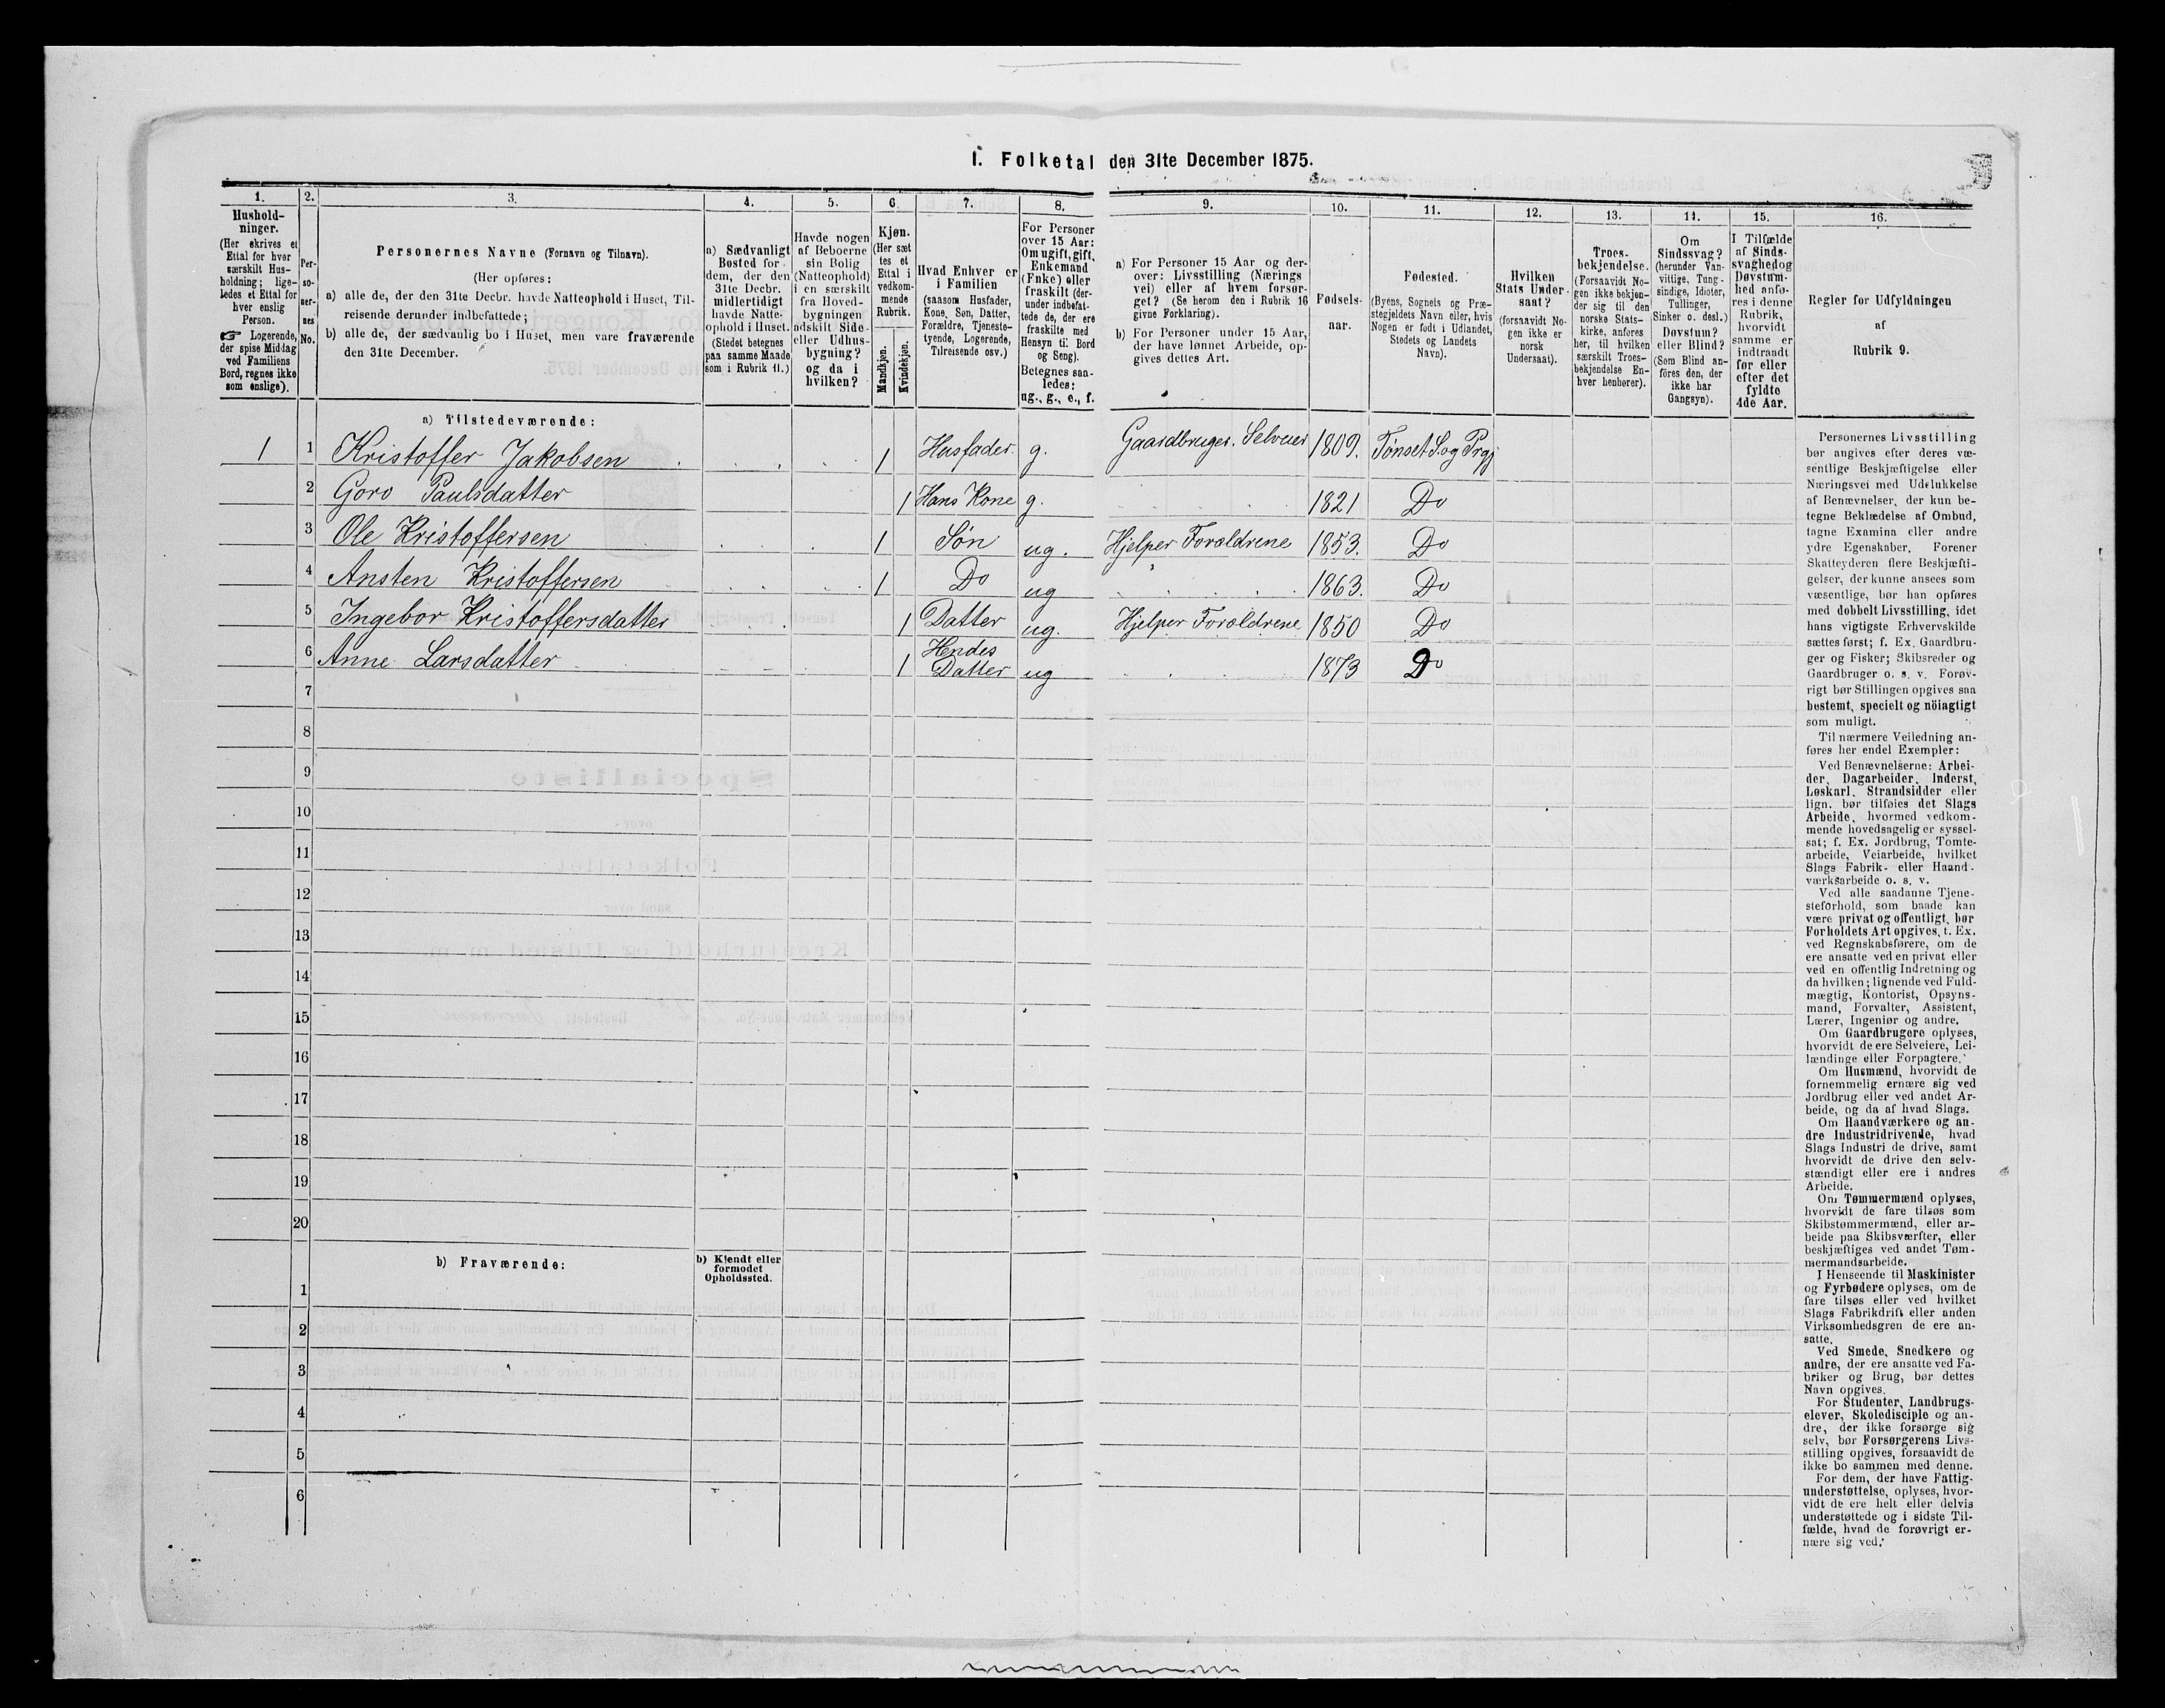 1. Folketal den 31te December 1875.
1. 2. 3. 4. 5. 6. 7. 8. 9. 10. 11. 12. 13. 14. 15. 16.
Hushold-
ninger.
(Her skrives et
Ettal for hver
særskilt Hus-
holdning; lige-
ledes et Ettal for
hver enslig
Person.
☞ Logerende,
der spise Middag
ved Familiens
Bord, regnes ikke
som enslige).
Per-
so-
ner-
nes
No.
Personernes Navne (Fornavn og Tilnavn).
(Her opføres:
a) alle de, der den 31te Decbr. havde Natteophold i Huset, Til-
reisende derunder indbefattede;
b) alle de, der sædvanlig bo i Huset, men vare fraværende
den 31te December.
a) Sædvanligt
Bosted for
dem, der den
31te Decbr.
midlertidigt
havde Natte-
ophold i Huset.
(Stedet betegnes
paa samme Maade
som i Rubrik 11.)
Havde nogen
af Beboerne
sin Bolig
(Natteophold)
i en særskilt
fra Hoved-
bygningen
adskilt Side-
eller Udhus-
bygning?
og da i
hvilken?
Kjøn.
(Her sæt
tes et
Ettal i
vedkom-
mende
Rubrik.
Mandkjøn.
Kvindekjøn.
Hvad Enhver er
i Familien
(saasom Husfader,
Kone, Søn, Datter,
Forældre, Tjeneste-
tyende, Logerende,
Tilreisende osv.)
For Personer
over 15 Aar:
Om ugift, gift,
Enkemand
(Enke) eller
fraskilt (der-
under indbefat-
tede de, der ere
fraskilte med
Hensyn til Bord
og Seng).
Betegnes saa-
ledes:
ug., g., e., f.
a) For Personer 15 Aar og der-
over: Livsstilling (Nærings
vei) eller af hvem forsør-
get? (Se herom den i Rubrik 16
givne Forklaring).
b) For Personer under 15 Aar,
der have lønnet Arbeide, op-
gives dettes Art.
Fødsels-
aar.
Fødested.
(Byens, Sognets og Præ-
stegjeldets Navn eller, hvis
Nogen er født i Udlandet,
Stedets og Landets
Navn).
Hvilken
Stats Under-
saat?
(forsaavidt No-
gen ikke er
norsk
Undersaat).
Troes-
bekjendelse.
(Forsaavidt No-
gen ikke bekjen-
der sig til den
norske Stats-
kirke, anføres
her, til hvilken
særskilt Troes-
bekjendelse En-
hver henhører).
Om
Sindssvag?
(herunder Van-
vittige, Tung-
sindige, Idioter,
Tullinger,
Sinker o. desl.)
Døvstum?
eller Blind?
(Som Blind an-
føres den, der
ikke har
Gangsyn).
I Tilfælde
af Sinds-
svaghed og
Døvstum-
hed anfø-
res i denne
Rubrik,
hvorvidt
samme er
indtraadt
før eller
efter det
fyldte
4de Aar.
Regler for Udfyldningen
af
Rubrik 9.
a) Tilstedeværende:
1 1 Kristoffer Jakobsen 1 Husfader g. Gaardbruger. Selveier 1809. Tønset S. og Prgj
2 Goro Paulsdatter 1 Hans Kone g. 1821 Do
3 Ole Kristoffersen 1 Søn ug. Hjelper Forældrene 1853. Do
4 Ansten Kristoffersen 1 Do ug 1863. Do
5 Ingebor Kristoffersdatter 1 Datter ug. Hjelper Forældrene 1850 Do
6 Anne Larsdatter 1 Hendes Datter ug 1873 Do
7
8
9
10
11
12
13
14
15
16
17
18
19
20
b) Fraværende:
b) Kjendt eller
formodet
Opholdssted.
1
2
3
4
5
6
Personernes Livsstilling
bør angives efter deres væ-
sentlige Beskjæftigelse eller
Næringsvei med Udelukkelse
af Benævnelser, der kun be-
tegne Beklædelse af Ombud,
tagne Examina eller andre
ydre Egenskaber. Forener
Skatteyderen flere Beskjæfti-
gelser, der kunne ansees som
væsentlige, bør han opføres
med dobbelt Livsstilling, idet
hans vigtigste Erhvervskilde
sættes først; f. Ex. Gaardbru-
ger og Fisker; Skibsreder og
Gaardbruger o. s. v. Forøv-
rigt bør Stillingen opgives saa
bestemt, specielt og nöiagtigt
som muligt.
Til nærmere Veiledning an-
føres her endel Exempler:
Ved Benævnelserne: Arbei-
der, Dagarbeider, Inderst,
Løskarl, Strandsidder eller
lign. bør tilføies det Slags
Arbeide, hvormed vedkom-
mende hovedsagelig er syssel-
sat; f. Ex. Jordbrug, Tomte-
arbeide, Veiarbeide, hvilket
Slags Fabrik- eller Haand-
værksarbeide o. s. v.
Ved alle saadanne Tjene-
steforhold, som baade kan
være privat og offentligt, bør
Forholdets Art opgives, t. Ex.
ved Regnskabsførere, om de
ere ansatte ved en privat eller
ved en offentlig Indretning og
da hvilken; lignende ved Fuld-
mægtig, Kontorist, Opsyns-
mand, Forvalter, Assistent,
Lærer, Ingeniør og andre.
Om Gaardbrugere oplyses,
hvorvidt de ere Selveiere, Lei-
lændinge eller Forpagtere.
Om Husmænd, hvorvidt de
fornemmelig ernære sig ved
Jordbrug eller ved andet Ar-
beide, og da af hvad Slags.
Om Haandværkere og an-
dre Industridrivende, hvad
Slags Industri de drive, samt
hvorvidt de drive den selv-
stændigt eller ere i andres
Arbeide.
Om Tømmermænd oplyses,
hvorvidt de fare tilsøs som
Skibstømmermænd, eller ar-
beide paa Skibsværfter, eller
beskjæftiges ved andet Tøm-
mermandsarbeide.
I Henseende til Maskinister
og Fyrbødere oplyses, om de
fare tilsøs eller ved hvilket
Slags Fabrikdrift eller anden
Virksomhedsgren de ere an-
satte.
Ved Smede, Snedkere og
andre, der ere ansatte ved Fa-
briker og Brug, bør dettes
Navn opgives.
For Studenter, Landbrugs-
elever, Skoledisciple og an-
dre, der ikke forsørge sig
selv, bør Forsørgerens Livs-
stilling opgives, forsaavidt de
ikke bo sammen med denne.
For dem, der have Fattig-
understøttelse, oplyses, hvor-
vidt de ere helt eller delvis
understøttede og i sidste Til-
fælde, hvad de forøvrigt er-
nære sig ved.